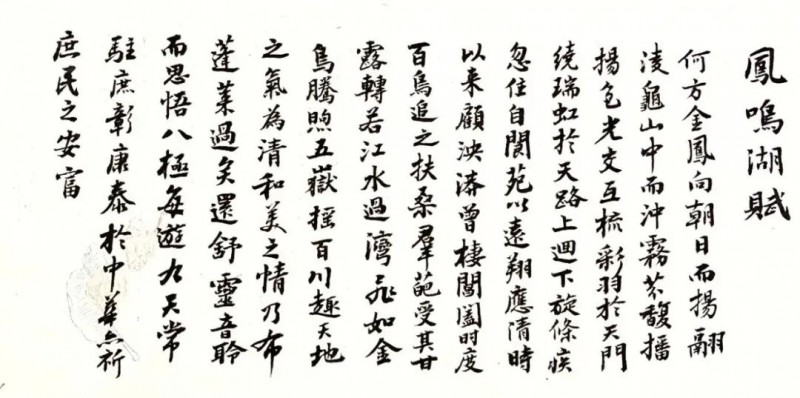 鳳鳴湖賦
何方金鳳向朝日而揚翮
淩龜山中而沖霧芬馥播
揚色光交互梳彩羽於天門
繞瑞虹於天路上迴下旋倏疾
忽住自閬苑以遠翔應清時
以来顧泱漭曾棲閶闔时度
百鳥追之扶桑羣葩受其甘
露轉若江水過灣飛如金
烏騰煦五嶽摇百川趣天地
之氣為清和美之情乃布
蓬萊過矣還舒靈音聆
而思悟八極每遊九天常
駐庶彰康泰於中華亦祈
庶民之安富